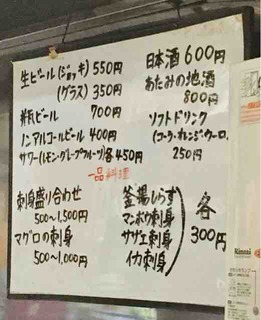 生ビール(ジョッキ) 550円
(グラス) 350円
瓶ビール 700円
ノンアルコールビール 400円
サワー(レモン・グレープフルーツ)各450円
日本酒 600円
あたみの地酒
800円
ソフトドリンク
(コーラ・オレンジ・ウーロン)
250円
一品料理
刺身盛り合わせ
500~1,500円
マグロの刺身
500~1,000円
釜揚しらす
マンボウ刺身
サザエ刺身
イカ刺身
各
300円
Rinnai